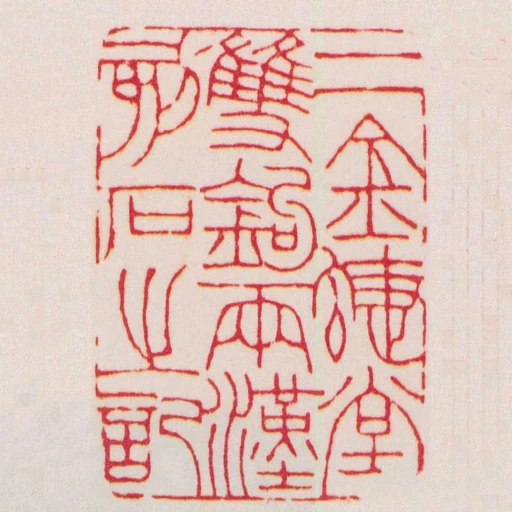 二金蜨堂
雙鉤兩漢
刻石之記